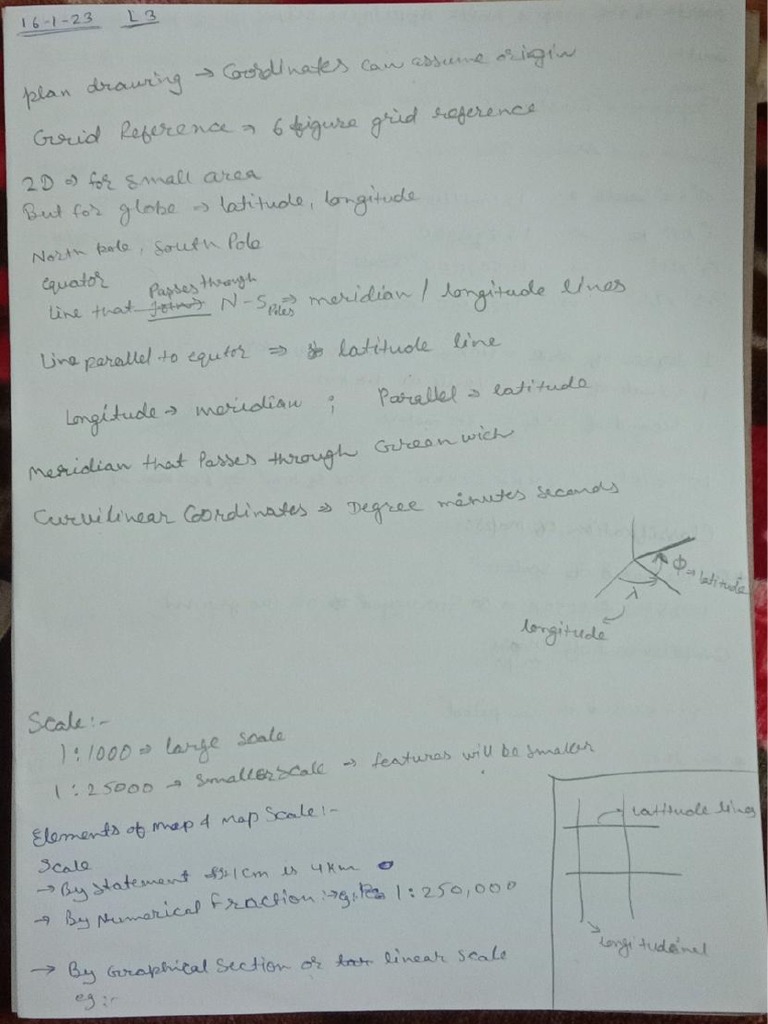 16-1-23 L3
plan drawing → Coordinates can assume origin
Grid Reference → 6 figure grid reference
2D ⇒ for small area
But for globe ⇒ latitude, longitude
North pole, South Pole
equator
Passes through
Line that N-S Poles ⇒ meridian / longitude lines
Line parallel to equtor ⇒ latitude line
Longitude → meridian ; Parallel ⇒ latitude
Meridian that Passes through Greenwich
Curvilinear Coordinates ⇒ Degree minutes seconds
ϕ → latitude
λ
longitude
Scale:-
1:1000 ⇒ large scale
1:25000 → Smaller scale → features will be smaller
Elements of map & Map Scale:-
Scale
→ By Statement 1cm is 4km
→ By Numerical Fraction :- 1:250,000
→ By Graphical Section or linear scale
eg:-
Latitude lines
longitudinal